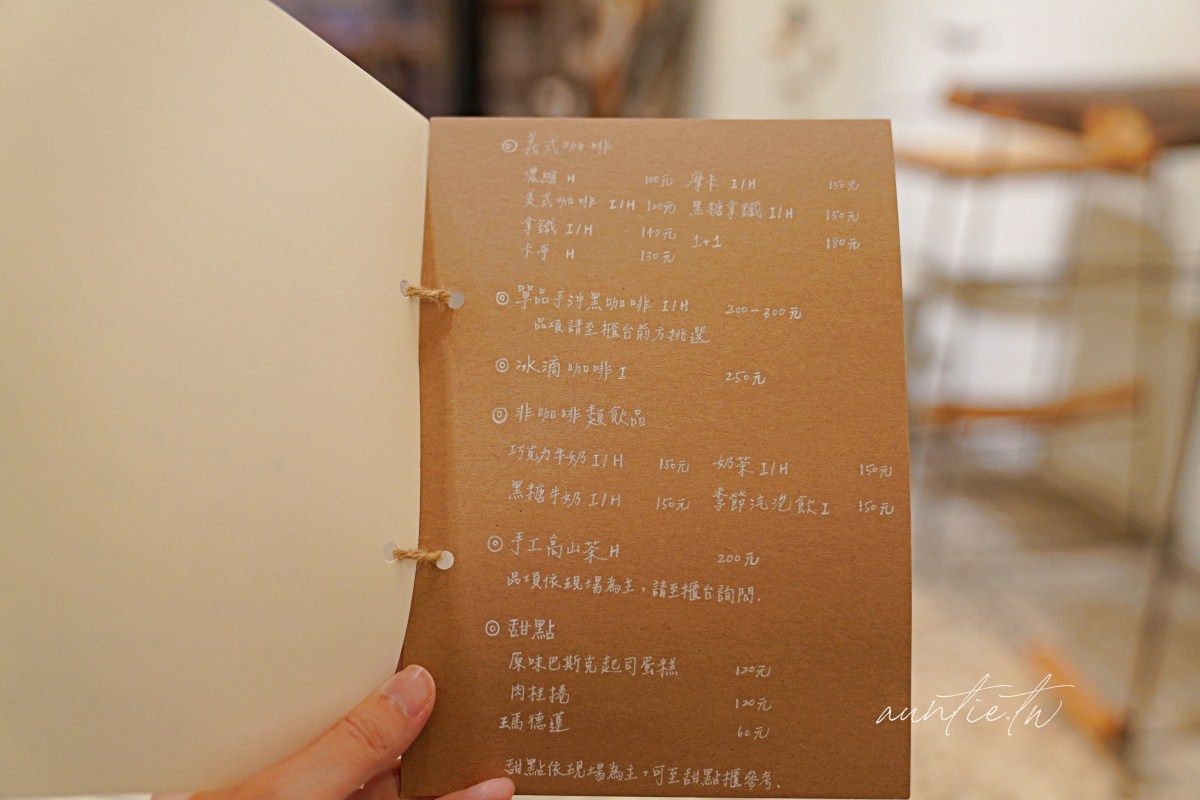 ◎ 義式咖啡
濃縮 H 100元 摩卡 I/H 150元
美式咖啡 I/H 120元 黑糖拿鐵 I/H 150元
拿鐵 I/H 140元 1+1 180元
卡布 H 130元
◎ 單品手沖黑咖啡 I/H 200-300元
品項請至櫃台前方挑選
◎ 冰滴咖啡 I 250元
◎ 非咖啡類飲品
巧克力牛奶 I/H 150元 奶茶 I/H 150元
黑糖牛奶 I/H 150元 季節汽泡飲 I 150元
◎ 手工高山茶 H 200元
品項依現場為主,請至櫃台詢問.
◎ 甜點
原味巴斯克起司蛋糕 120元
肉桂捲 120元
瑪德蓮 60元
甜點依現場為主,可至甜點櫃參考.
auntie.tw